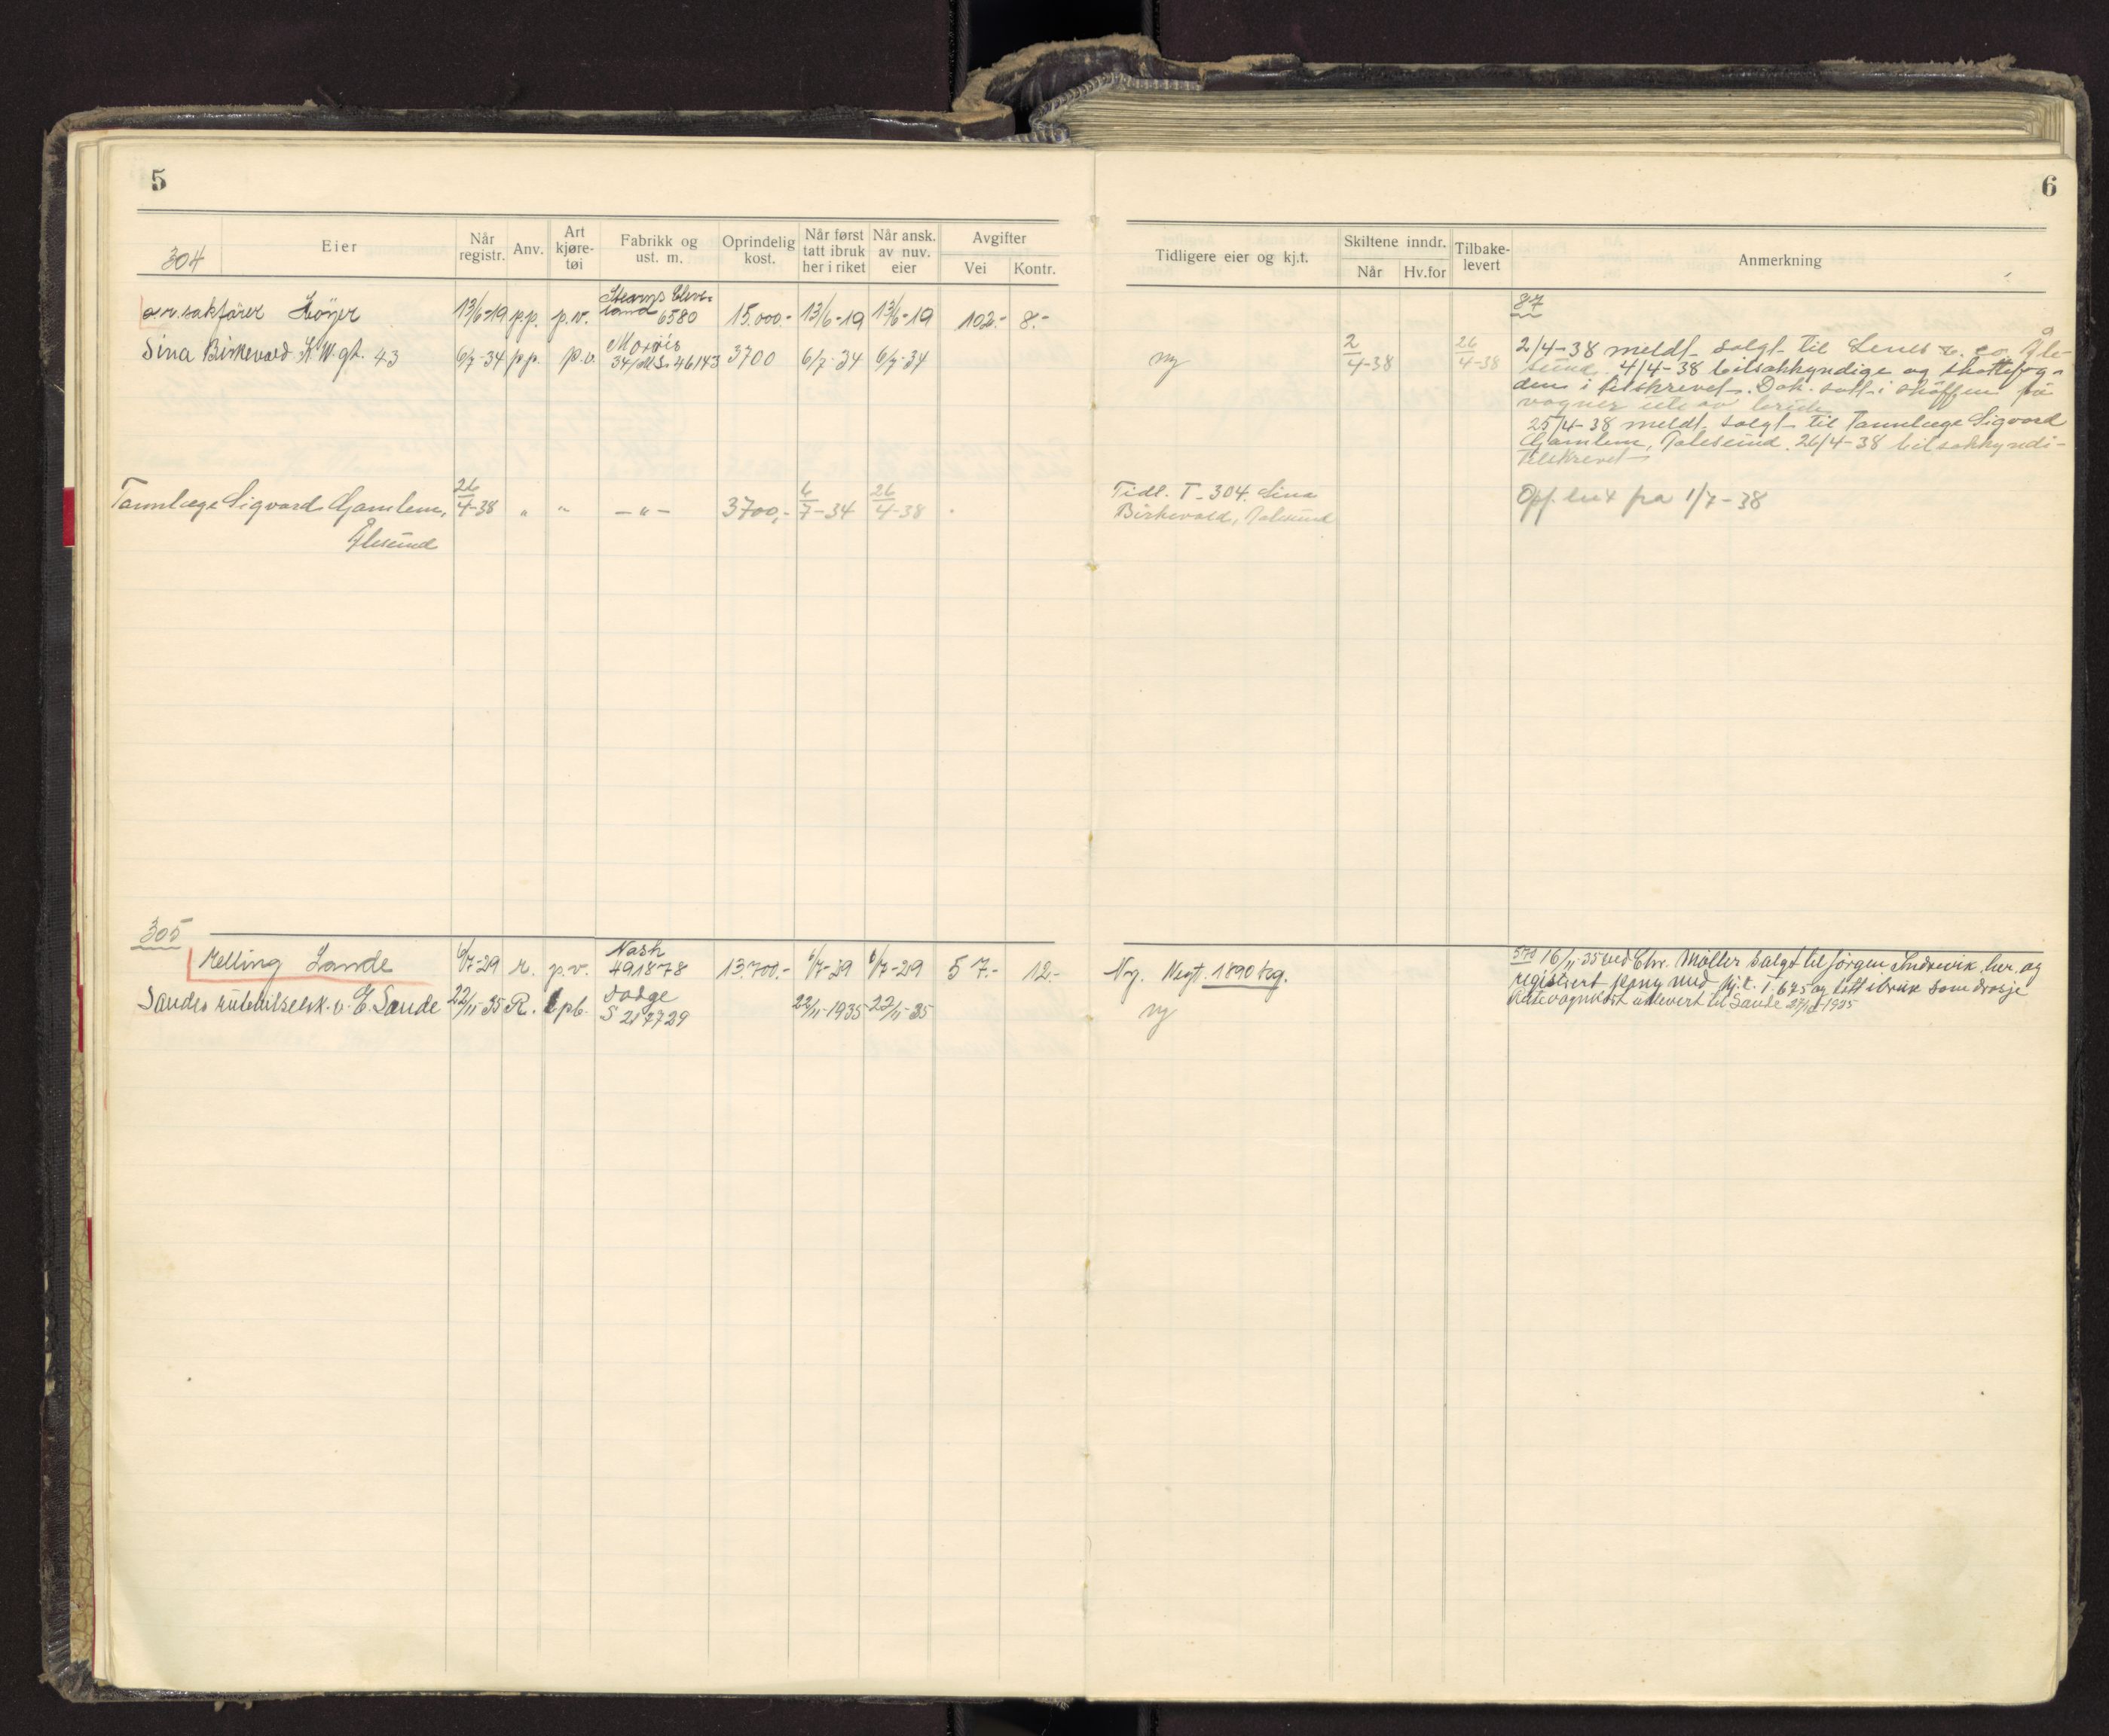 5
6
304
Eier
Når registr.
Anv.
Art kjøre-tøi
Fabrikk og ust. m.
Oprindelig kost.
Når først tatt ibruk her i riket
Når ansk. av nuv. eier
Avgifter
Vei
Kontr.
Tidligere eier og kj.t.
Skiltene inndr.
Når
Hv.for
Tilbake-levert
Anmerkning
o.r.sakfører Höyer 13/6-19 p.p. p.v. Stearns Cleve-
land 6580 15.000.- 13/6-19 13/6-19 102.- 8.- 87
Sina Birkevold K.W.gt. 43 6/7-34 p.p. p.v. Morris
34/ 46143 3700 6/7-34 6/7-34 ny 2/4-38 26/4-38
2/4-38 meldt solgt til Lenes & Co. Åle-
sund. 4/4-38 bilsakkyndige og skattefog-
den i tilskrevet. Dok. satt i skuffen på
vogner ute av bruk.
25/4-38 meldt solgt til Tannlæge Sigvard
Gjamlem, Aalesund. 26/4-38 bilsakkyndi-
tilskrevet
Tannlæge Sigvard Gjamlem, 26/4-38 " " -"- 3700,- 6/7-34 26/4-38 Tidl. T-304. Sina
Ålesund Birkevold, Aalesund
Opf. fra 1/7-38
305
Melling Sande 6/7-29 r. p.v. Nash
491878 13.700.- 6/7-29 6/7-29 57.- 12.- Ny. Vegt. 1890 kg.
Sandes rutebilselsk. v. E. Sande 22/11-35 R. pb. Dodge
S 217729 22/11-1935 22/11-35 ny
16/11-35 ved Chr. Møller solgt til Jörgen Indrevik, her, og
registrert paany med kj.t. T-675 og tatt ibruk som drosje
Rutevognkort utlevert til Sande 27/11-1935